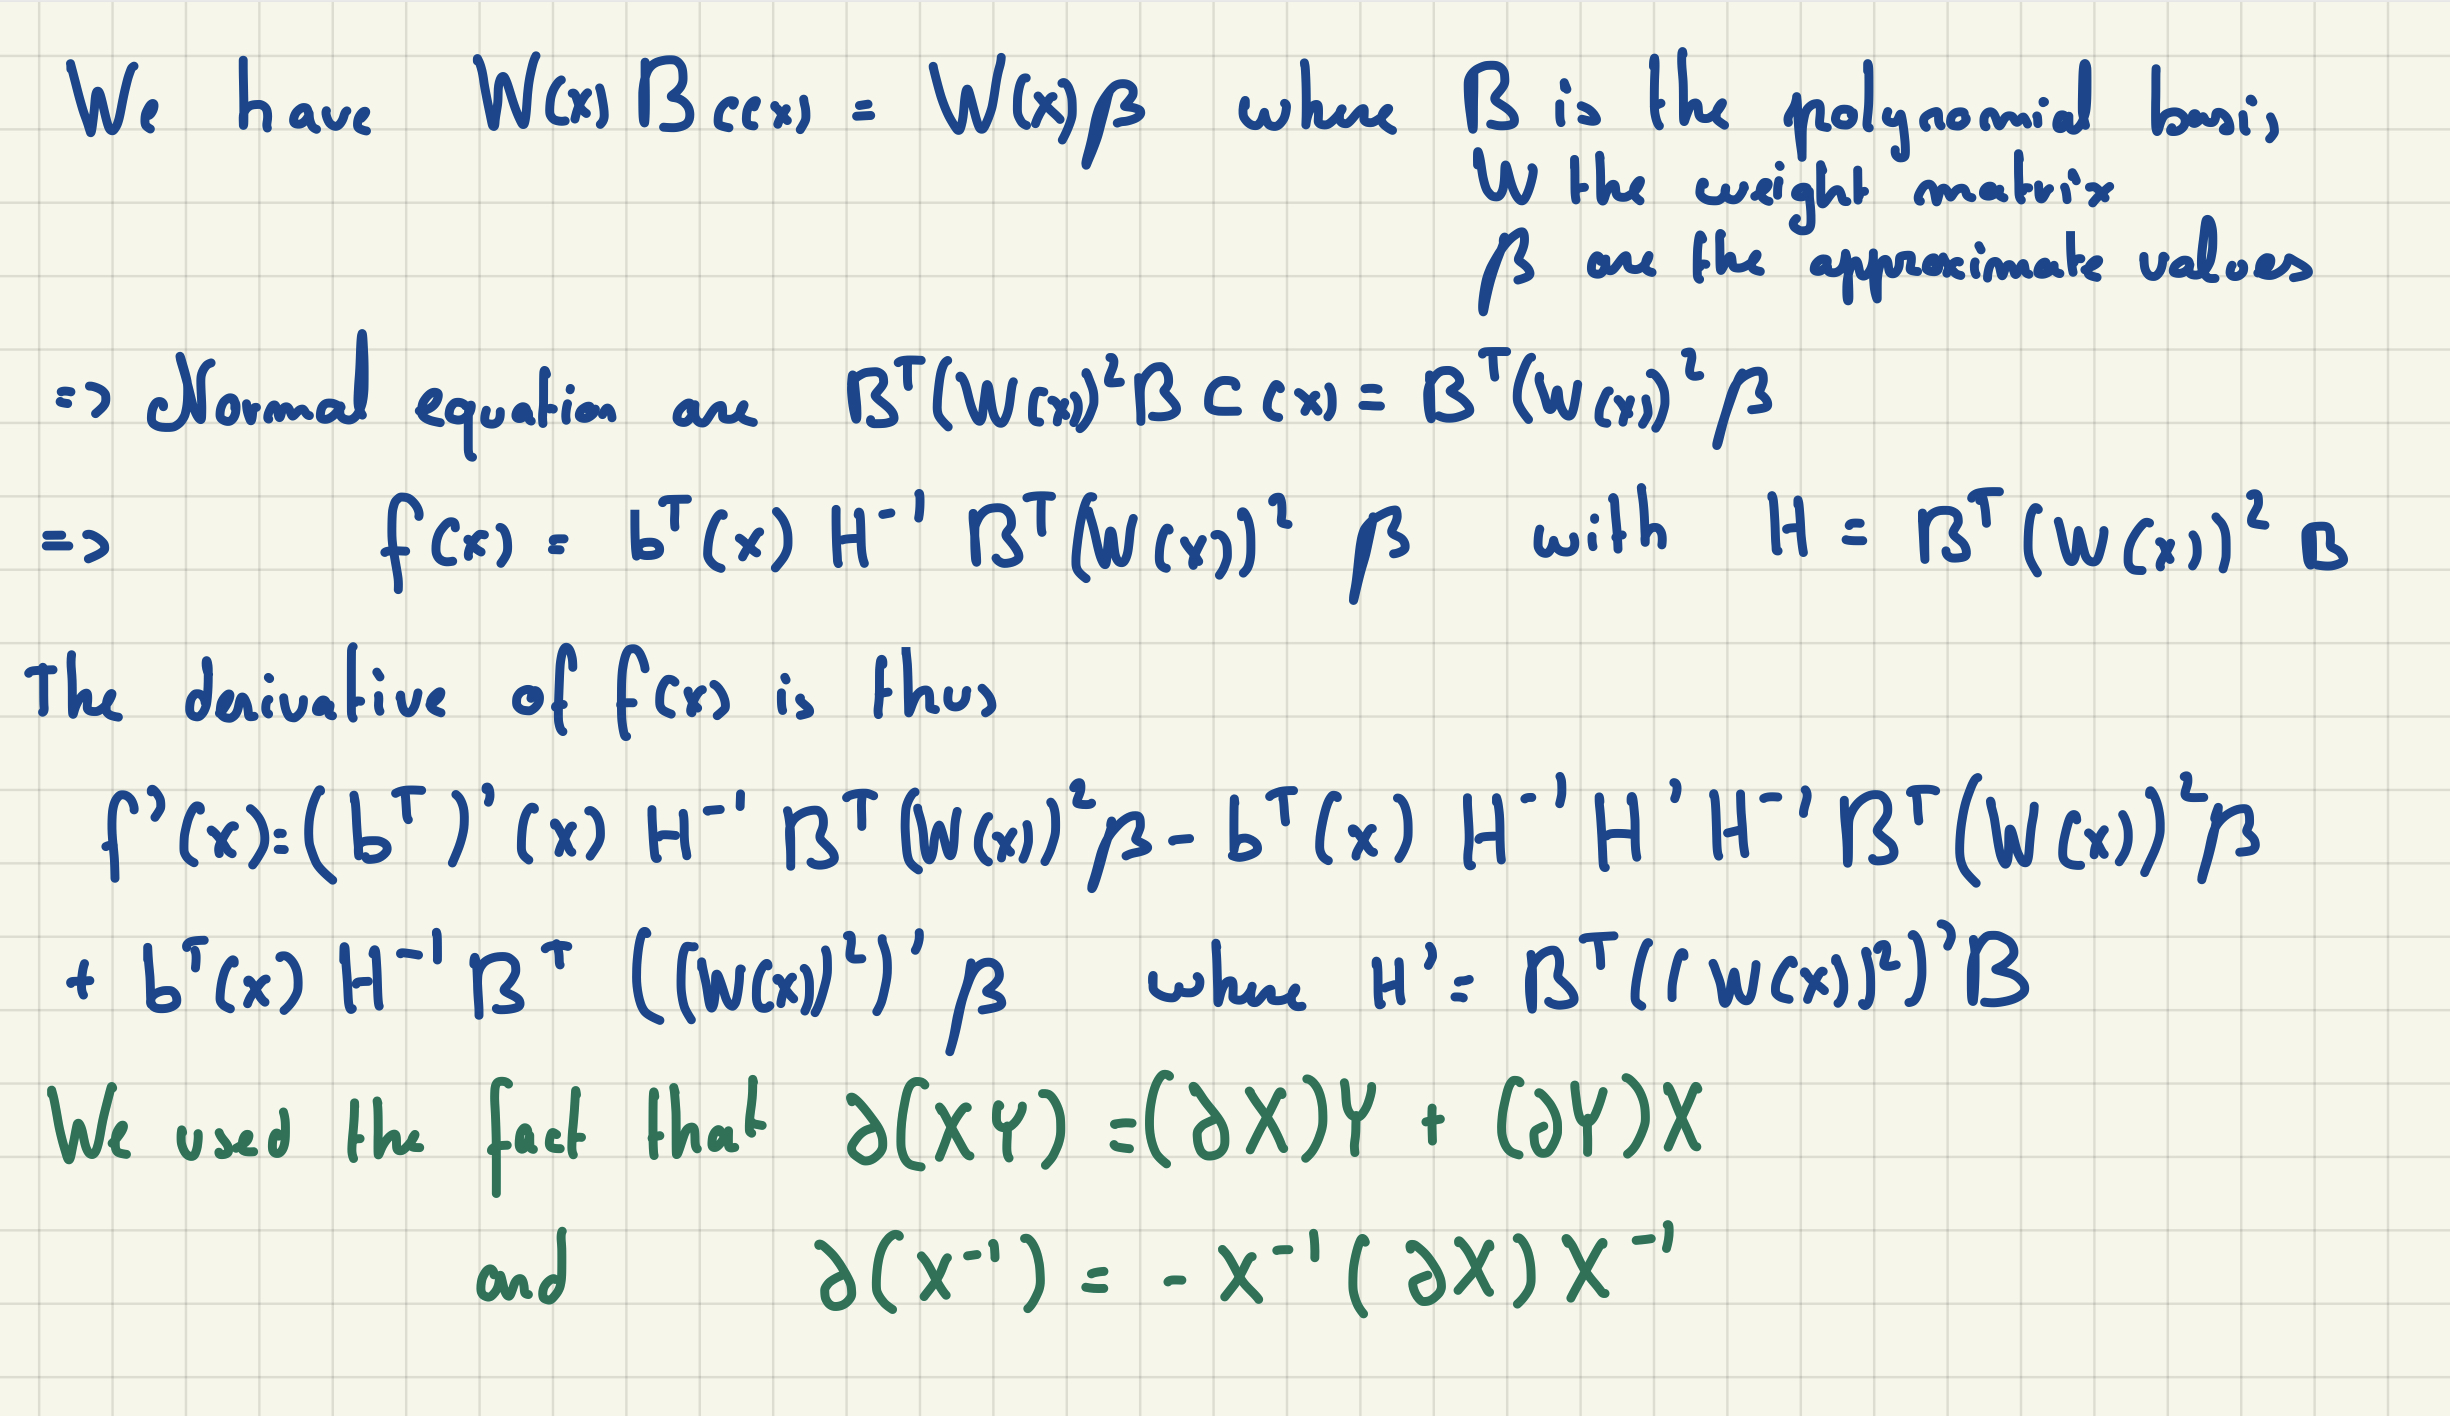 We have W(x) B c(x) = W(x) β where B is the polynomial basis
W the weight matrix
β are the approximate values
=> Normal equation are Bᵀ(W(x))² B c(x) = Bᵀ(W(x))² β
=> f(x) = bᵀ(x) H⁻¹ Bᵀ(W(x))² β with H = Bᵀ(W(x))² B
The derivative of f(x) is thus
f'(x) = (bᵀ)'(x) H⁻¹ Bᵀ(W(x))² β - bᵀ(x) H⁻¹ H' H⁻¹ Bᵀ(W(x))² β
+ bᵀ(x) H⁻¹ Bᵀ ((W(x))²)' β where H' = Bᵀ((W(x))²)' B
We used the fact that ∂(XY) = (∂X)Y + (∂Y)X
and ∂(X⁻¹) = - X⁻¹(∂X)X⁻¹